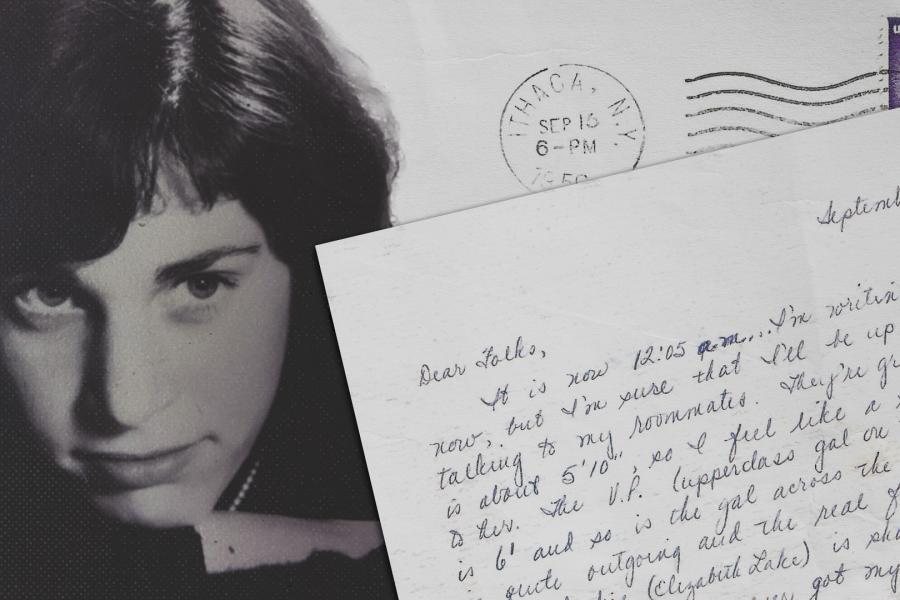 U
ITHACA, N.Y.
SEP 16
6-PM
Septemb
Dear Folks,
It is now 12:05 a.m....I'm writin
now, but I'm sure that I'll be up
talking to my roommates. They're gr
is about 5'10", so I feel like a
to her. The V.P. (upperclass gal on
is 6' and so is the gal across the
quite outgoing and the real
(Elizabeth Lake) is sh
got my